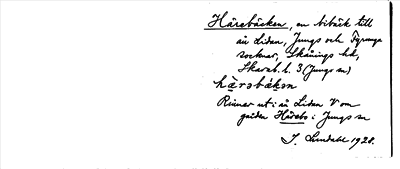 Häresbäcken, en bibäck till
ån Lidan, Jungs och Fyrunga
socknar, Skånings hd,
Skarab. l. 3 (Jungs sn)
hä̀rəsbɛ́kən
Rinner ut i ån Lidan V om
gården Härebo i Jungs sn
I. Lundahl 1928.